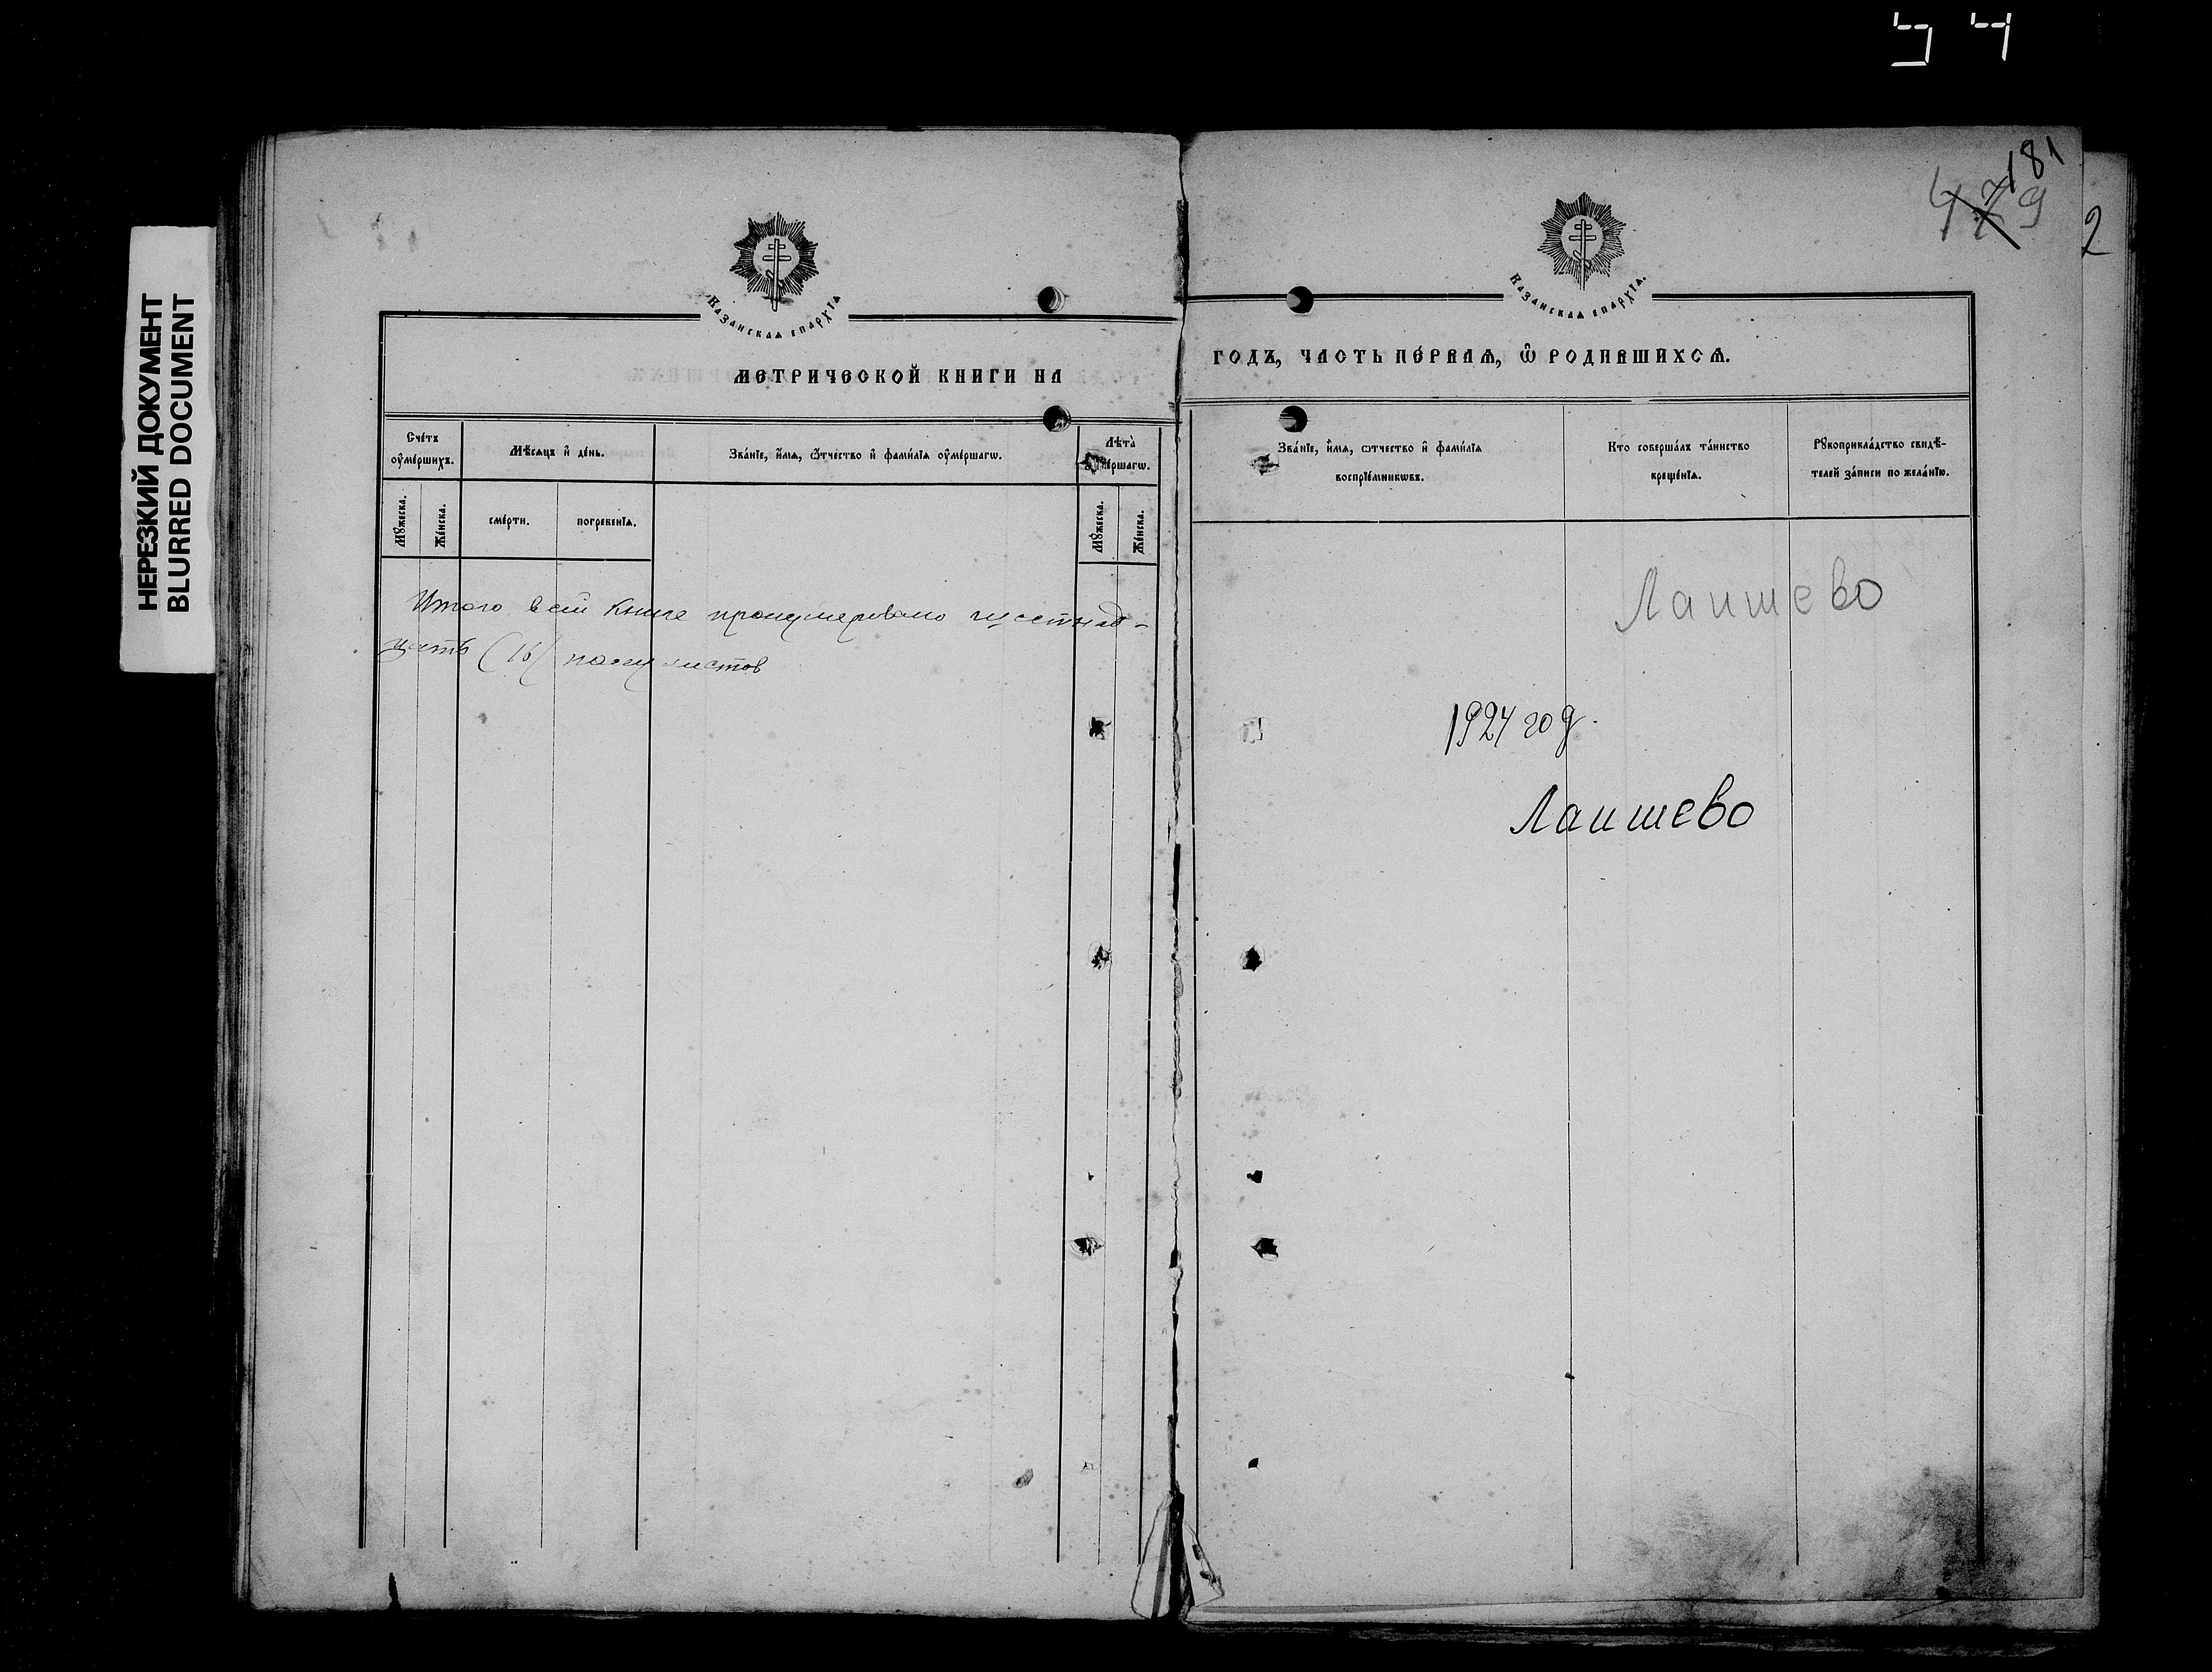 НЕРЕЗКИЙ ДОКУМЕНТ
BLURRED DOCUMENT
Казанская епархїѧ
МЕТРИЧЕСКОЙ КНИГИ НА
Счéтъ оумéршихъ.
Мѣсяцъ и дéнь.
Звáнїе, и́мѧ, ѻ́тчество и фами́лїѧ оумéршагѡ.
Лѣтà оумéршагѡ.
Мꙋжеска.
Жéнска.
смéрти.
погребенїѧ.
Мꙋжеска.
Жéнска.
Итого в сей книге пронумеровано шестнад-
цать (16) полулистов
181
479
2
Казанская епархїѧ.
ГОДЪ, ЧАСТЬ ПЕ́РВАѦ, Ѽ РОДИВШИХСѦ.
Звáнїе, и́мѧ, ѻтчество и фами́лїѧ
воспрїéмникѡвъ.
Кто совершáлъ тáинство
крещéнїѧ.
Рꙋкоприклáдство свидѣ-
телей зáписи по желáнїю.
Лаишево
1924 год.
Лаишево